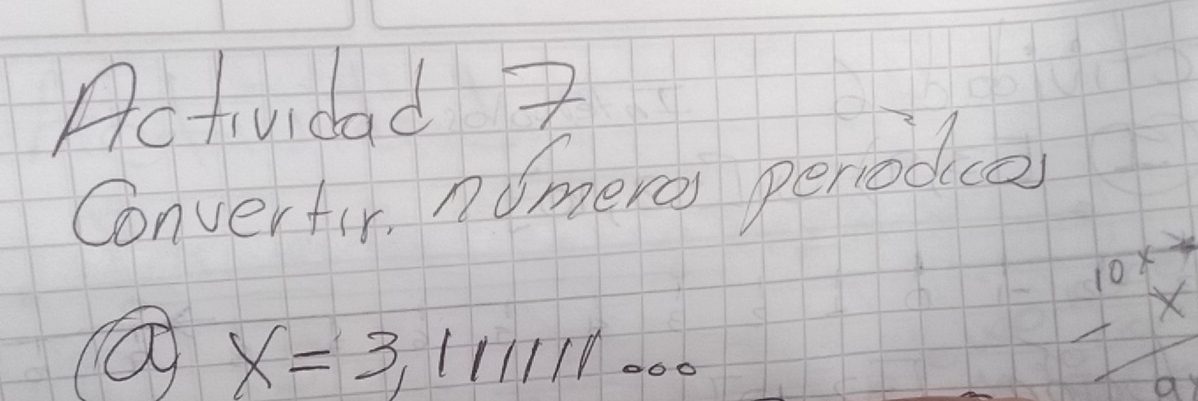 Actividad 7
Convertir. números periodicos
10x
x
a) x = 3,1111111...